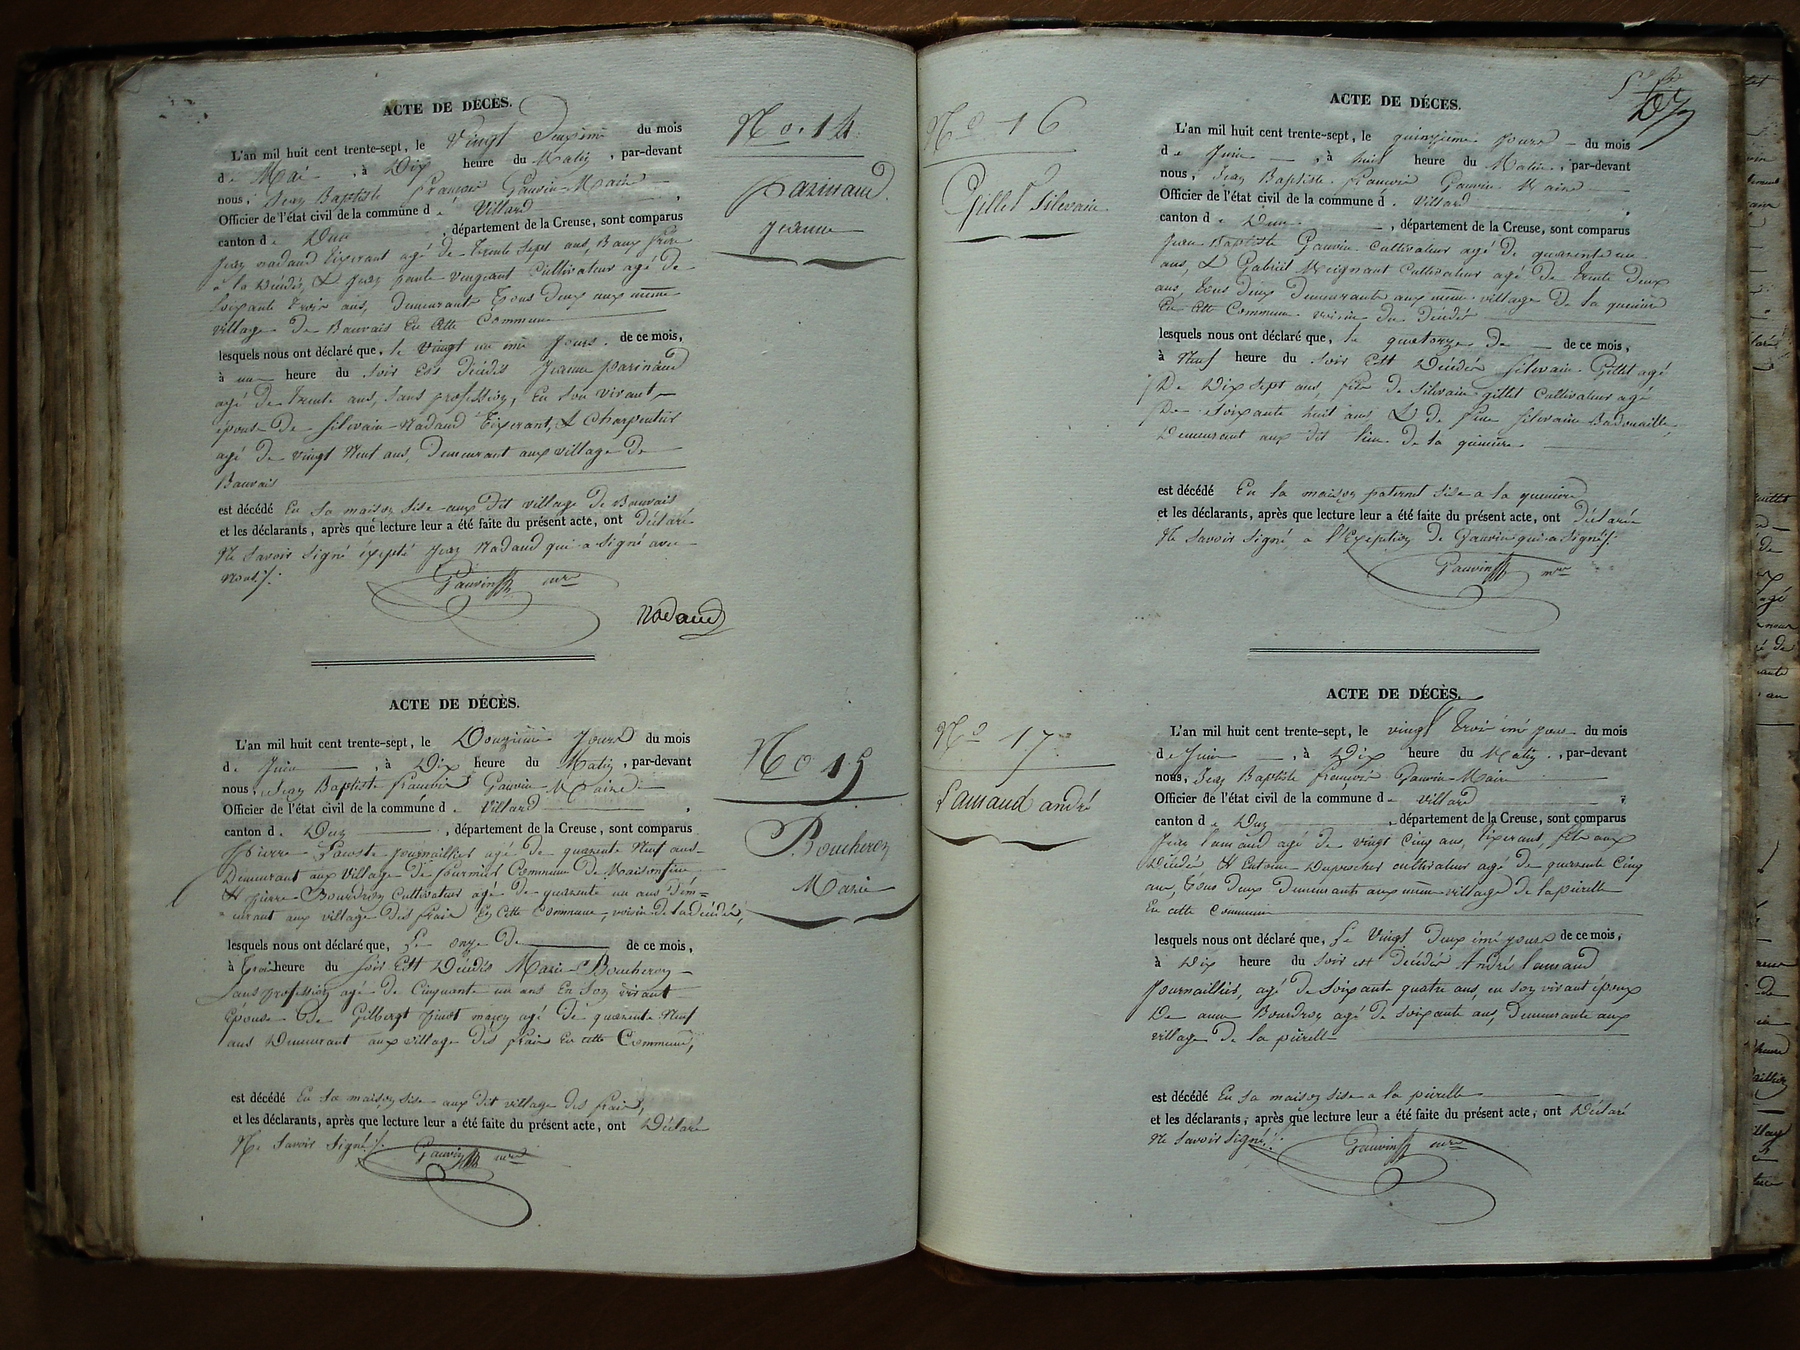 ACTE DE DÉCÈS.
L'an mil huit cent trente-sept, le Vingt Deuxième du mois
de Mai, à Dix heure du Matin, par-devant
nous, Jean Baptiste François Gauvin Maire
Officier de l'état civil de la commune de Villard,
canton de Dun, département de la Creuse, sont comparus
Jean nadaud tixerant agé de trente sept ans, Baux frère
a la Décédé, & Jean vengeant Cultivateur agé de
Soixante trois ans, demeurant tous deux aux même
village De Bauvais En Cette Commune
lesquels nous ont déclaré que, le vingt un ime jours de ce mois,
à un heure du Soir Est décédés Jeanne parinaud
agé De trente ans, sans profession, En son vivant
épouse De Silvain Nadaud Tixerant, & Charpentier
agé De vingt Neuf ans, Demeurant aux village De
Bauvais
est décédé En Sa maison sise aux dit village De Bauvais
et les déclarants, après que lecture leur a été faite du présent acte, ont Déclaré
Ne Savoir Signé éxepté Jean Nadaud qui a Signé avec
nous ./.
Gauvin mre
Nadaud
No. 14
parinaud
Jeanne
ACTE DE DÉCÈS.
L'an mil huit cent trente-sept, le Douzième Jours du mois
de Juin, à Dix heure du Matin, par-devant
nous, Jean Baptiste françois Gauvin Maire
Officier de l'état civil de la commune de Villard,
canton de Dun, département de la Creuse, sont comparus
pierre Lacoste journaillier agé de quarente Neuf ans
Demeurant aux Village De fournier Commune De Maisonfeine
Et pierre Bourdron Cultivateur agé De quarente un ans Dem=
=eurant aux village Des frais En Cette Commune voisin de la décédé,
lesquels nous ont déclaré que, Le onze De de ce mois,
à trois heure du Soir Est Décédés Marie Boucheron
sans profession agé de Cinquante un ans En Son vivant
épouse De Gilbert pinot maçon agé De quarente Neuf
ans Demeurant aux village Des frais En cette Commune,
est décédé En Sa maison sise aux Dit village Des frais,
et les déclarants, après que lecture leur a été faite du présent acte, ont Déclaré
Ne Savoir Signé ./.
Gauvin mre
No 15
Boucheron
Marie
No 16
Gillet Silvain
ACTE DE DÉCÈS.
L'an mil huit cent trente-sept, le quinzième Jours du mois
de Juin, à huit heure du Matin, par-devant
nous, Jean Baptiste françois Gauvin Maire
Officier de l'état civil de la commune de Villard,
canton de Dun, département de la Creuse, sont comparus
Jean Baptiste Gauvin Cultivateur agé de quarente un
ans, & Gabriel Meignant Cultivateur agé De trente Deux
ans, tous deux Demeurants aux même village De la
En Cette Commune voisin du Décédé
lesquels nous ont déclaré que, le quatorze de de ce mois,
à Neuf heure du Soir Est Décédé Silvain Gillet agé
De Dix Sept ans, fils de Silvain gillet Cultivateur agé
De Soixante huit ans & de feue Silvaine Badouaille
Demeurant aux dit lieu De la
est décédé En la maison paternel Sise a la
et les déclarants, après que lecture leur a été faite du présent acte, ont Déclaré
Ne Savoir Signé, a l'Exeption De Gauvin qui a Signé ./.
Gauvin mre
No 17
Lamaud andré
ACTE DE DÉCÈS.
L'an mil huit cent trente-sept, le vingt trois ime jour du mois
de Juin, à Dix heure du Matin, par-devant
nous, Jean Baptiste françois Gauvin Maire
Officier de l'état civil de la commune de villard,
canton de Dun, département de la Creuse, sont comparus
Jean lamaud agé de vingt Cinq ans, tixerant, fils aux
Décédé Et Antoine Deproscher cultivateur agé de quarente Cinq
ans, tous Deux Demeurants aux même village De la
En cette Commune
lesquels nous ont déclaré que, Le Vingt Deux ime jours de ce mois,
à Dix heure du Soir est décédé André lamaud
Journaillier, agé De Soixante quatre ans, en son vivant époux
De anne Bourdron agé De Soixante ans, Demeurante aux
village De la
est décédé En Sa maison sise a la
et les déclarants, après que lecture leur a été faite du présent acte, ont Déclaré
Ne Savoir Signé ./.
Gauvin mre